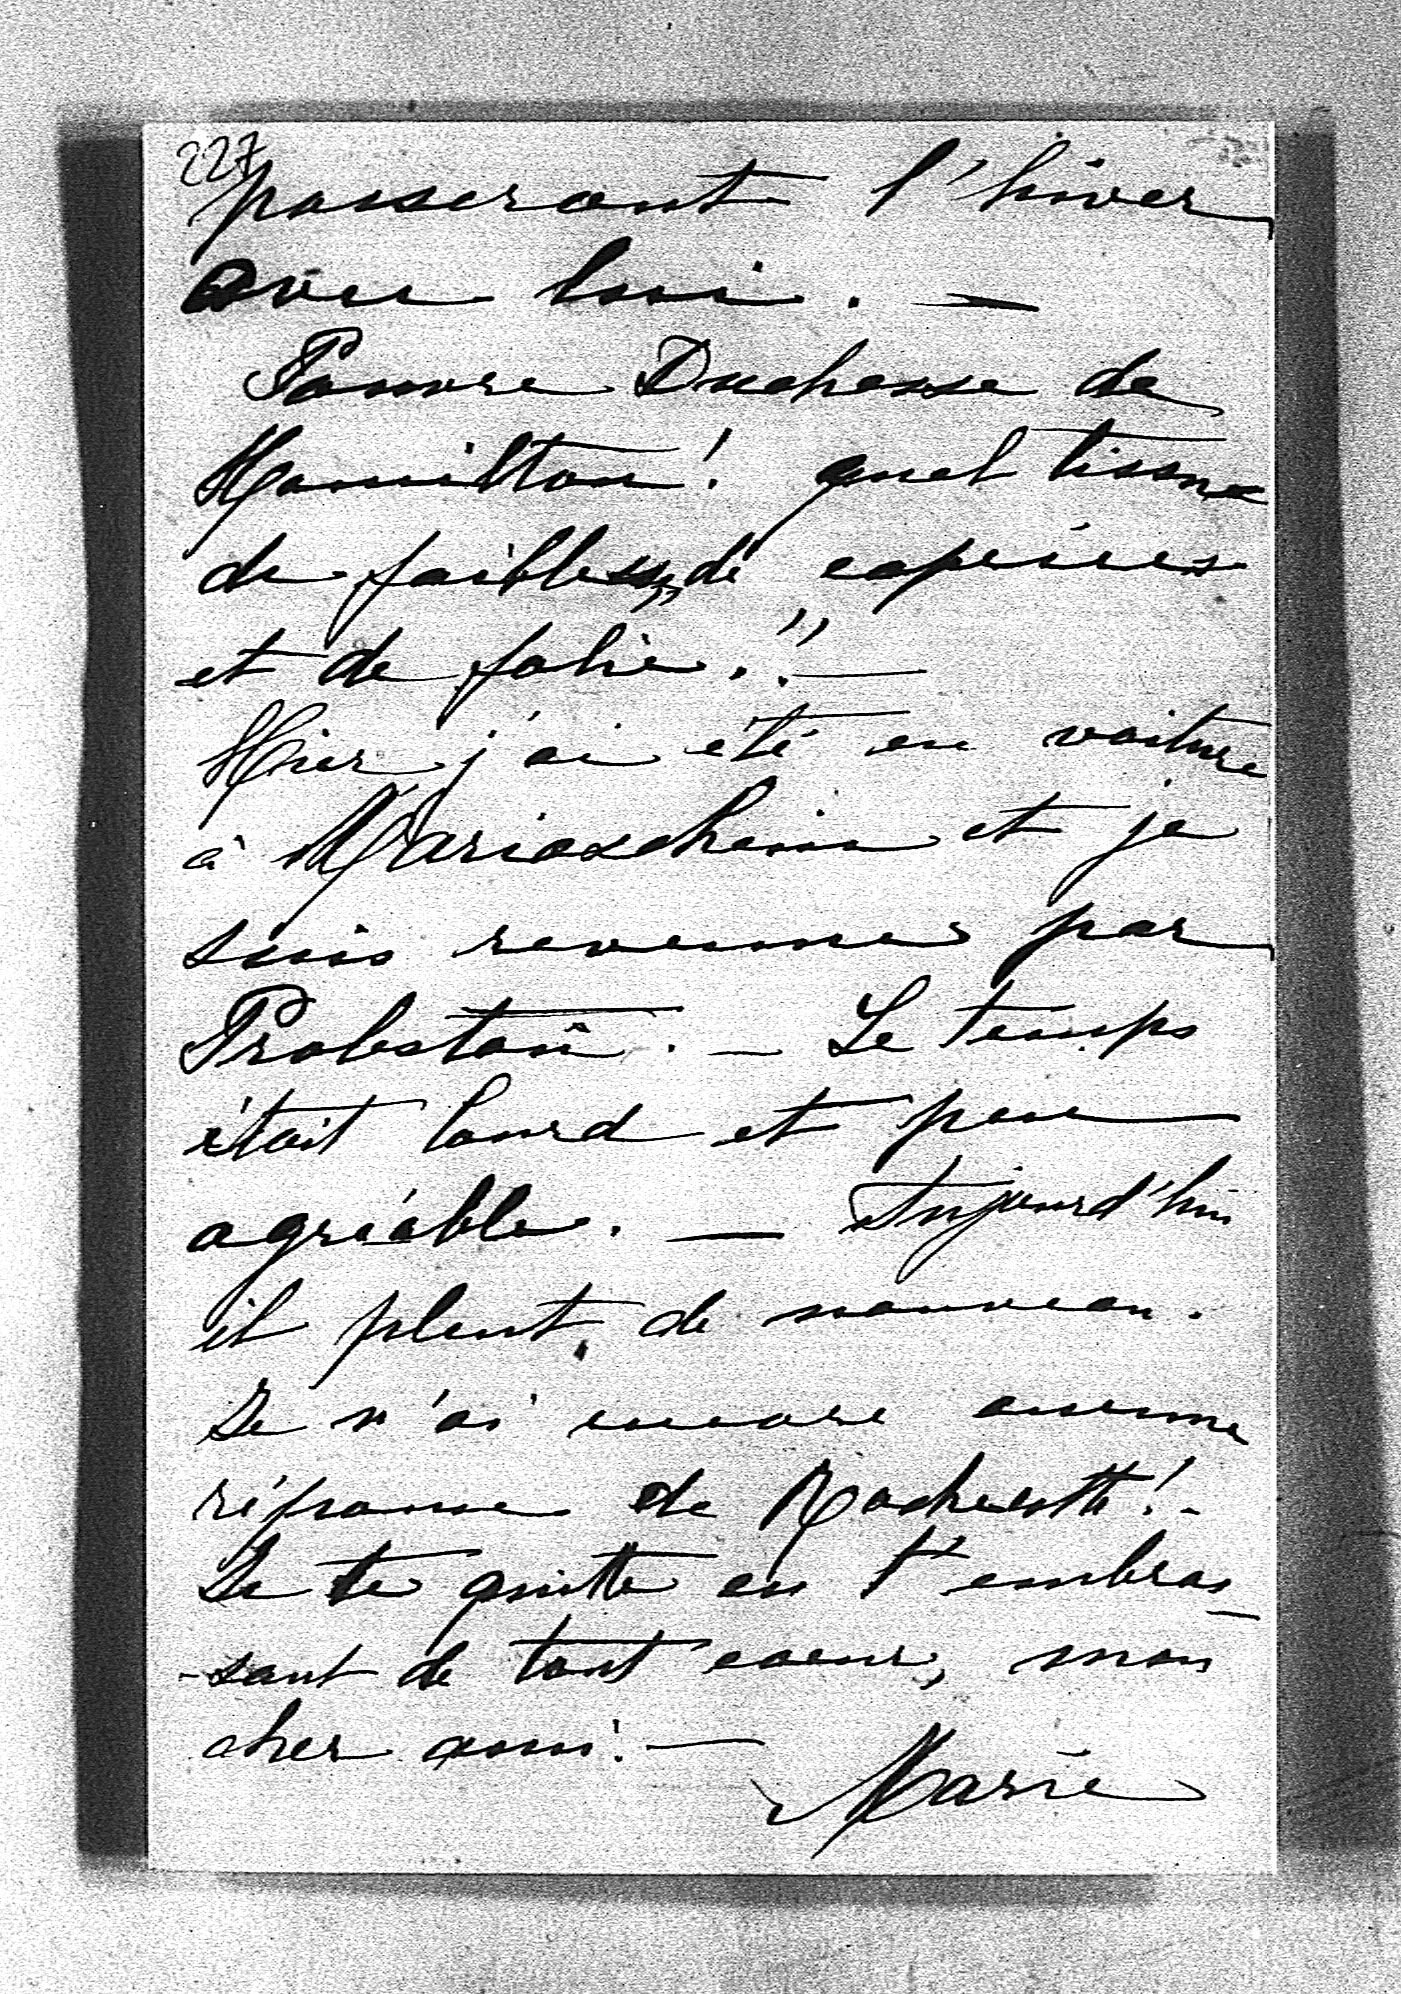 227
passeront l'hiver
avec lui. —
Pauvre Duchesse de
Hamilton! quel tissue
de faiblesse, de caprices
et de folie.!! —
Hier j'ai été en voiture
à Mariaschein et je
suis revenue par
Probstau. — Le temps
était lourd et peu
agréable. — Aujourd'hui
il pleut, de nouveau.
Je n'ai encore aucune
réponse de
Je te quitte en t'embras
-sant de tout coeur, mon
cher ami! —
Marie